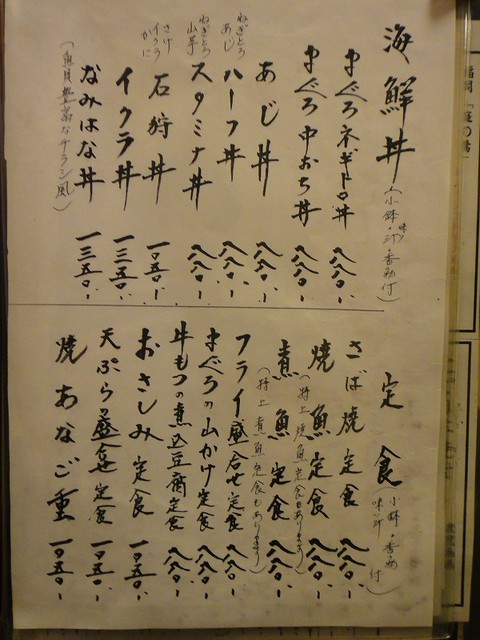 海鮮丼(小鉢・味噌汁・香物付)
まぐろネギトロ丼 八八〇-
まぐろ中おち丼 八八〇-
あじ丼 八八〇-
ねぎとろ あじ ハーフ丼 八八〇-
ねぎとろ 山芋 スタミナ丼 八八〇-
さけ イクラ かに 石狩丼 一〇五〇-
イクラ丼 一三五〇-
なみはな丼 一三五〇-
(具豊富なチラシ風)
定食 (小鉢・香物 味噌汁 付)
さば焼定食 八八〇-
焼魚定食 八八〇-
(特上焼魚定食もあります)
煮魚定食 八八〇-
(特上煮魚定食もあります)
フライ盛合せ定食 八八〇-
まぐろの山かけ定食 八八〇-
牛もつの煮込豆腐定食 八八〇-
おさしみ定食 一〇五〇-
天ぷら盛合せ定食 一〇五〇-
焼あなご重 一〇五〇-